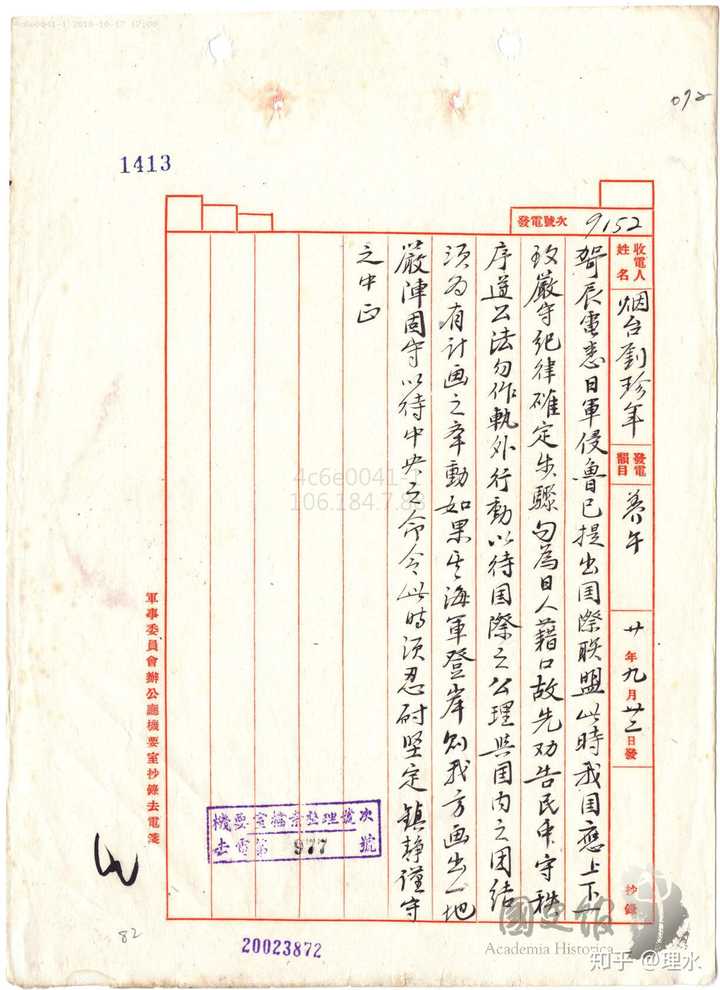 4c6e0041-1 2016-10-17 17:00
092
1413
發電號次 9152
收電人姓名 烟台劉珍年 發電韻目 養午 廿年九月廿二日發 抄錄
哿辰電悉日軍侵魯已提出国際联盟此時我国應上下一
致嚴守紀律確定步驟勿為日人藉口故先劝告民众守秩
序遵公法勿作軌外行動以待国際之公理與国内之团结
須為有計画之举動如果其海軍登岸则我方画出一地
嚴陣固守以待中央之命令此時須忍耐坚定鎮静謹守
之中正
軍事委員會辦公廳機要室抄錄去電箋
機要室檔案整理號次
去電第 977 號
4c6e0041-1
106.184.7.88
82
20023872
國史館
Academia Historica
知乎 @理水